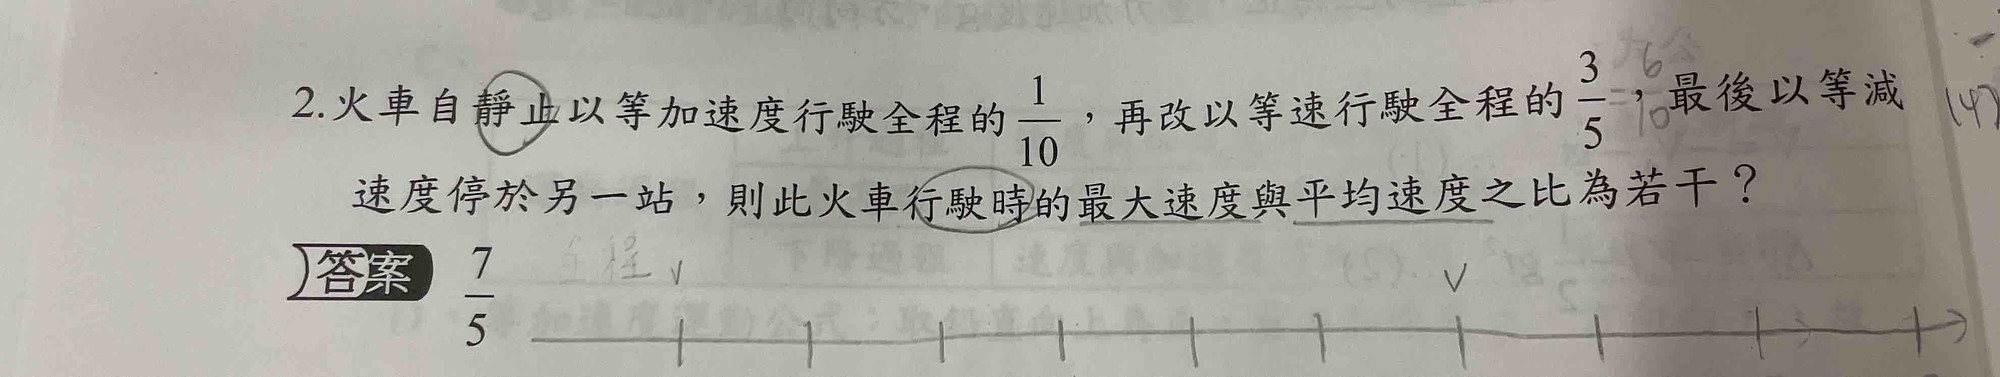 2.火車自靜止以等加速度行駛全程的 1/10，再改以等速行駛全程的 3/5，最後以等減
= 6/10
(4)
速度停於另一站，則此火車行駛時的最大速度與平均速度之比為若干？
答案 7/5
全程 v v